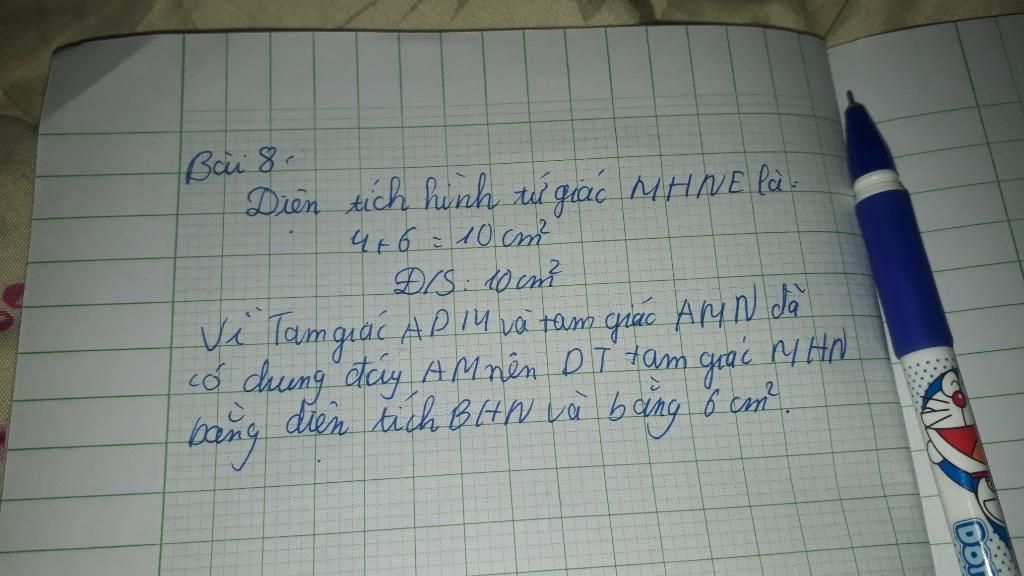 Bài 8:
Diện tích hình tứ giác MHNE là:
4+6 = 10 cm²
Đ/S: 10 cm²
Vì Tam giác ADM và tam giác AMN đã
có chung đáy AM nên DT tam giác MHN
bằng diện tích BHN và bằng 6 cm².